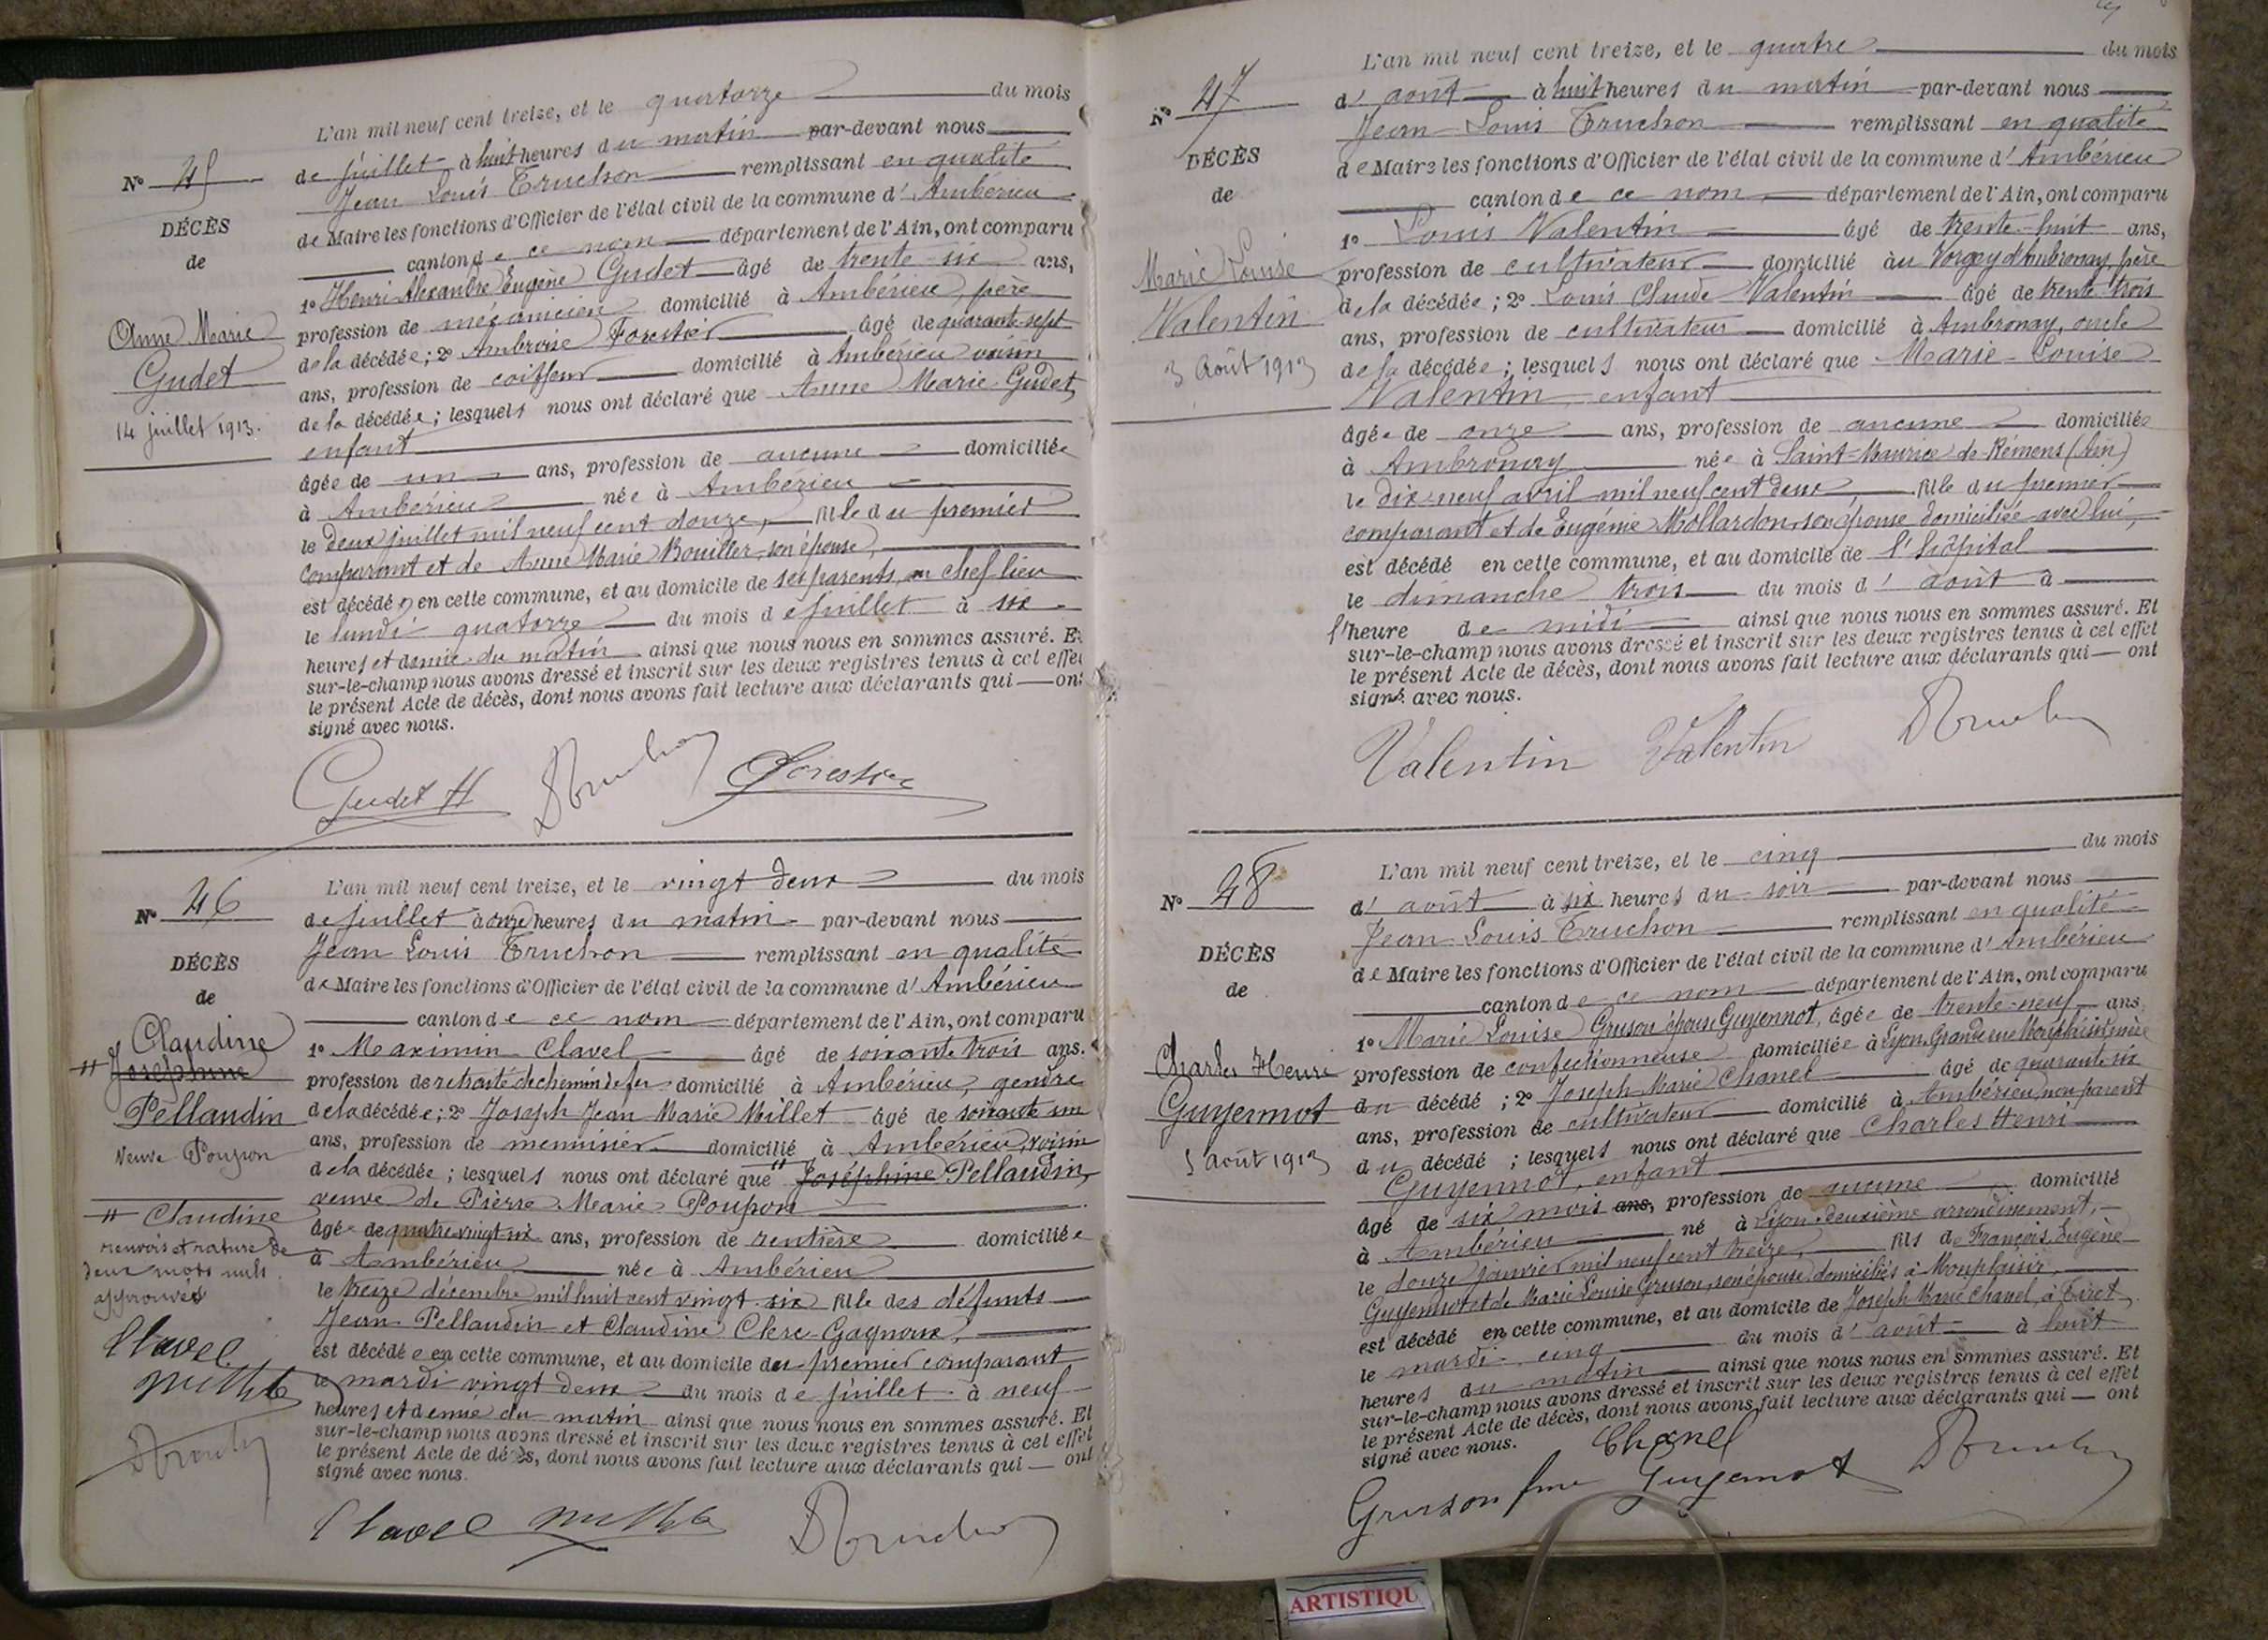 L'an mil neuf cent treize, et le quatorze du mois
N° 45
de juillet à huit heures du matin par-devant nous
Jean Louis Truchon remplissant en qualité
DÉCÈS
de Maire les fonctions d'Officier de l'état civil de la commune d'Ambérieu
de
canton de ce nom département de l'Ain, ont comparu
1° Henri Alexandre Eugène Gudet âgé de trente-six ans,
Anne Marie
profession de mécanicien domicilié à Ambérieu, père
Gudet
de la décédée; 2° Ambroise Forestier âgé de quarante-sept
14 juillet 1913.
ans, profession de coiffeur domicilié à Ambérieu voisin
de la décédée; lesquels nous ont déclaré que Anne Marie Gudet,
enfant
âgée de un ans, profession de aucune domiciliée
à Ambérieu née à Ambérieu
le deux juillet mil neuf cent douze, fille du premier
comparant et de Anne Marie Bouiller, son épouse,
est décédée en cette commune, et au domicile de ses parents, au chef lieu
le lundi quatorze du mois de juillet à six
heures et demie du matin ainsi que nous nous en sommes assuré. Et
sur-le-champ nous avons dressé et inscrit sur les deux registres tenus à cet effet
le présent Acte de décès, dont nous avons fait lecture aux déclarants qui ont
signé avec nous.
Gudet H Truchon Forestier
L'an mil neuf cent treize, et le vingt deux du mois
N° 46
de juillet à onze heures du matin par-devant nous
Jean Louis Truchon remplissant en qualité
DÉCÈS
de Maire les fonctions d'Officier de l'état civil de la commune d'Ambérieu
de
canton de ce nom département de l'Ain, ont comparu
Claudine
1° Maximin Clavel âgé de soixante trois ans.
" Joséphine
profession de retraité de chemin de fer domicilié à Ambérieu, gendre
Pellaudin
de la décédée; 2° Joseph Jean Marie Millet âgé de soixante un
Veuve Poupon
ans, profession de menuisier domicilié à Ambérieu, voisin
de la décédée; lesquels nous ont déclaré que " Joséphine Pellaudin,
veuve de Pierre Marie Poupon
" Claudine
âgée de quatre-vingt-six ans, profession de rentière domiciliée
renvois et rature de
à Ambérieu née à Ambérieu
deux mots nuls
approuvés
le treize décembre mil huit cent vingt-six fille des défunts
Jean Pellaudin et Claudine Clerc-Gagneux,
Clavel
est décédée en cette commune, et au domicile du premier comparant
Millet
le mardi vingt deux du mois de juillet à neuf
heures et demie du matin ainsi que nous nous en sommes assuré. Et
Truchon
sur-le-champ nous avons dressé et inscrit sur les deux registres tenus à cet effet
le présent Acte de décès, dont nous avons fait lecture aux déclarants qui ont
signé avec nous.
Clavel Millet Truchon
L'an mil neuf cent treize, et le quatre du mois
N° 47
d'août à huit heures du matin par-devant nous
Jean Louis Truchon remplissant en qualité
DÉCÈS
de Maire les fonctions d'Officier de l'état civil de la commune d'Ambérieu
de
canton de ce nom département de l'Ain, ont comparu
1° Louis Valentin âgé de trente-huit ans,
Marie Louise
profession de cultivateur domicilié au Vorgey d'Ambronay, père
Valentin
de la décédée; 2° Louis Claude Valentin âgé de trente trois
ans, profession de cultivateur domicilié à Ambronay, oncle
3 Août 1913
de la décédée; lesquels nous ont déclaré que Marie-Louise
Valentin, enfant
âgée de onze ans, profession de aucune domiciliée
à Ambronay née à Saint-Maurice-de-Rémens (Ain)
le dix-neuf avril mil neuf cent deux, fille du premier
comparant et de Eugénie Mollardon, son épouse, domiciliée avec lui,
est décédé en cette commune, et au domicile de l'hôpital
le dimanche trois du mois d'août à
l'heure de midi ainsi que nous nous en sommes assuré. Et
sur-le-champ nous avons dressé et inscrit sur les deux registres tenus à cet effet
le présent Acte de décès, dont nous avons fait lecture aux déclarants qui ont
signé avec nous.
Valentin Valentin Truchon
L'an mil neuf cent treize, et le cinq du mois
N° 48
d'août à six heures du soir par-devant nous
Jean Louis Truchon remplissant en qualité
DÉCÈS
de Maire les fonctions d'Officier de l'état civil de la commune d'Ambérieu
de
canton de ce nom département de l'Ain, ont comparu
1° Marie Louise Gruson épouse Guyennot, âgée de trente-neuf ans,
Charles Henri
profession de confectionneuse domiciliée à Lyon, Grande rue Monplaisir, mère
Guyennot
du décédé; 2° Joseph-Marie Chanel âgé de quarante-six
ans, profession de cultivateur domicilié à Ambérieu, non parent
5 Août 1913
du décédé; lesquels nous ont déclaré que Charles Henri
Guyennot, enfant
âgé de six mois ans, profession de aucune domicilié
à Ambérieu né à Lyon, deuxième arrondissement,
le douze janvier mil neuf cent treize, fils de François Eugène
Guyennot et de Marie Louise Gruson, son épouse, domiciliés à Monplaisir,
est décédé en cette commune, et au domicile de Joseph Marie Chanel, à Tiret,
le mardi cinq du mois d'août à huit
heures du matin ainsi que nous nous en sommes assuré. Et
sur-le-champ nous avons dressé et inscrit sur les deux registres tenus à cet effet
le présent Acte de décès, dont nous avons fait lecture aux déclarants qui ont
signé avec nous.
Chanel
Gruson fme Guyennot Truchon
ARTISTIQU